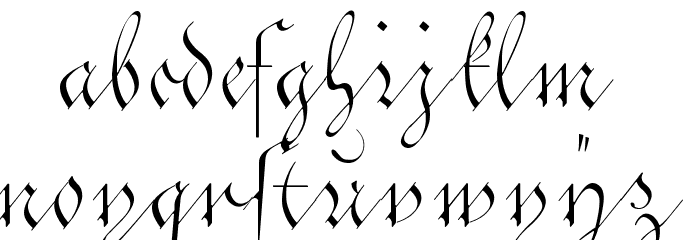 abcdefghijklm
nopqrſtŭvwxÿz